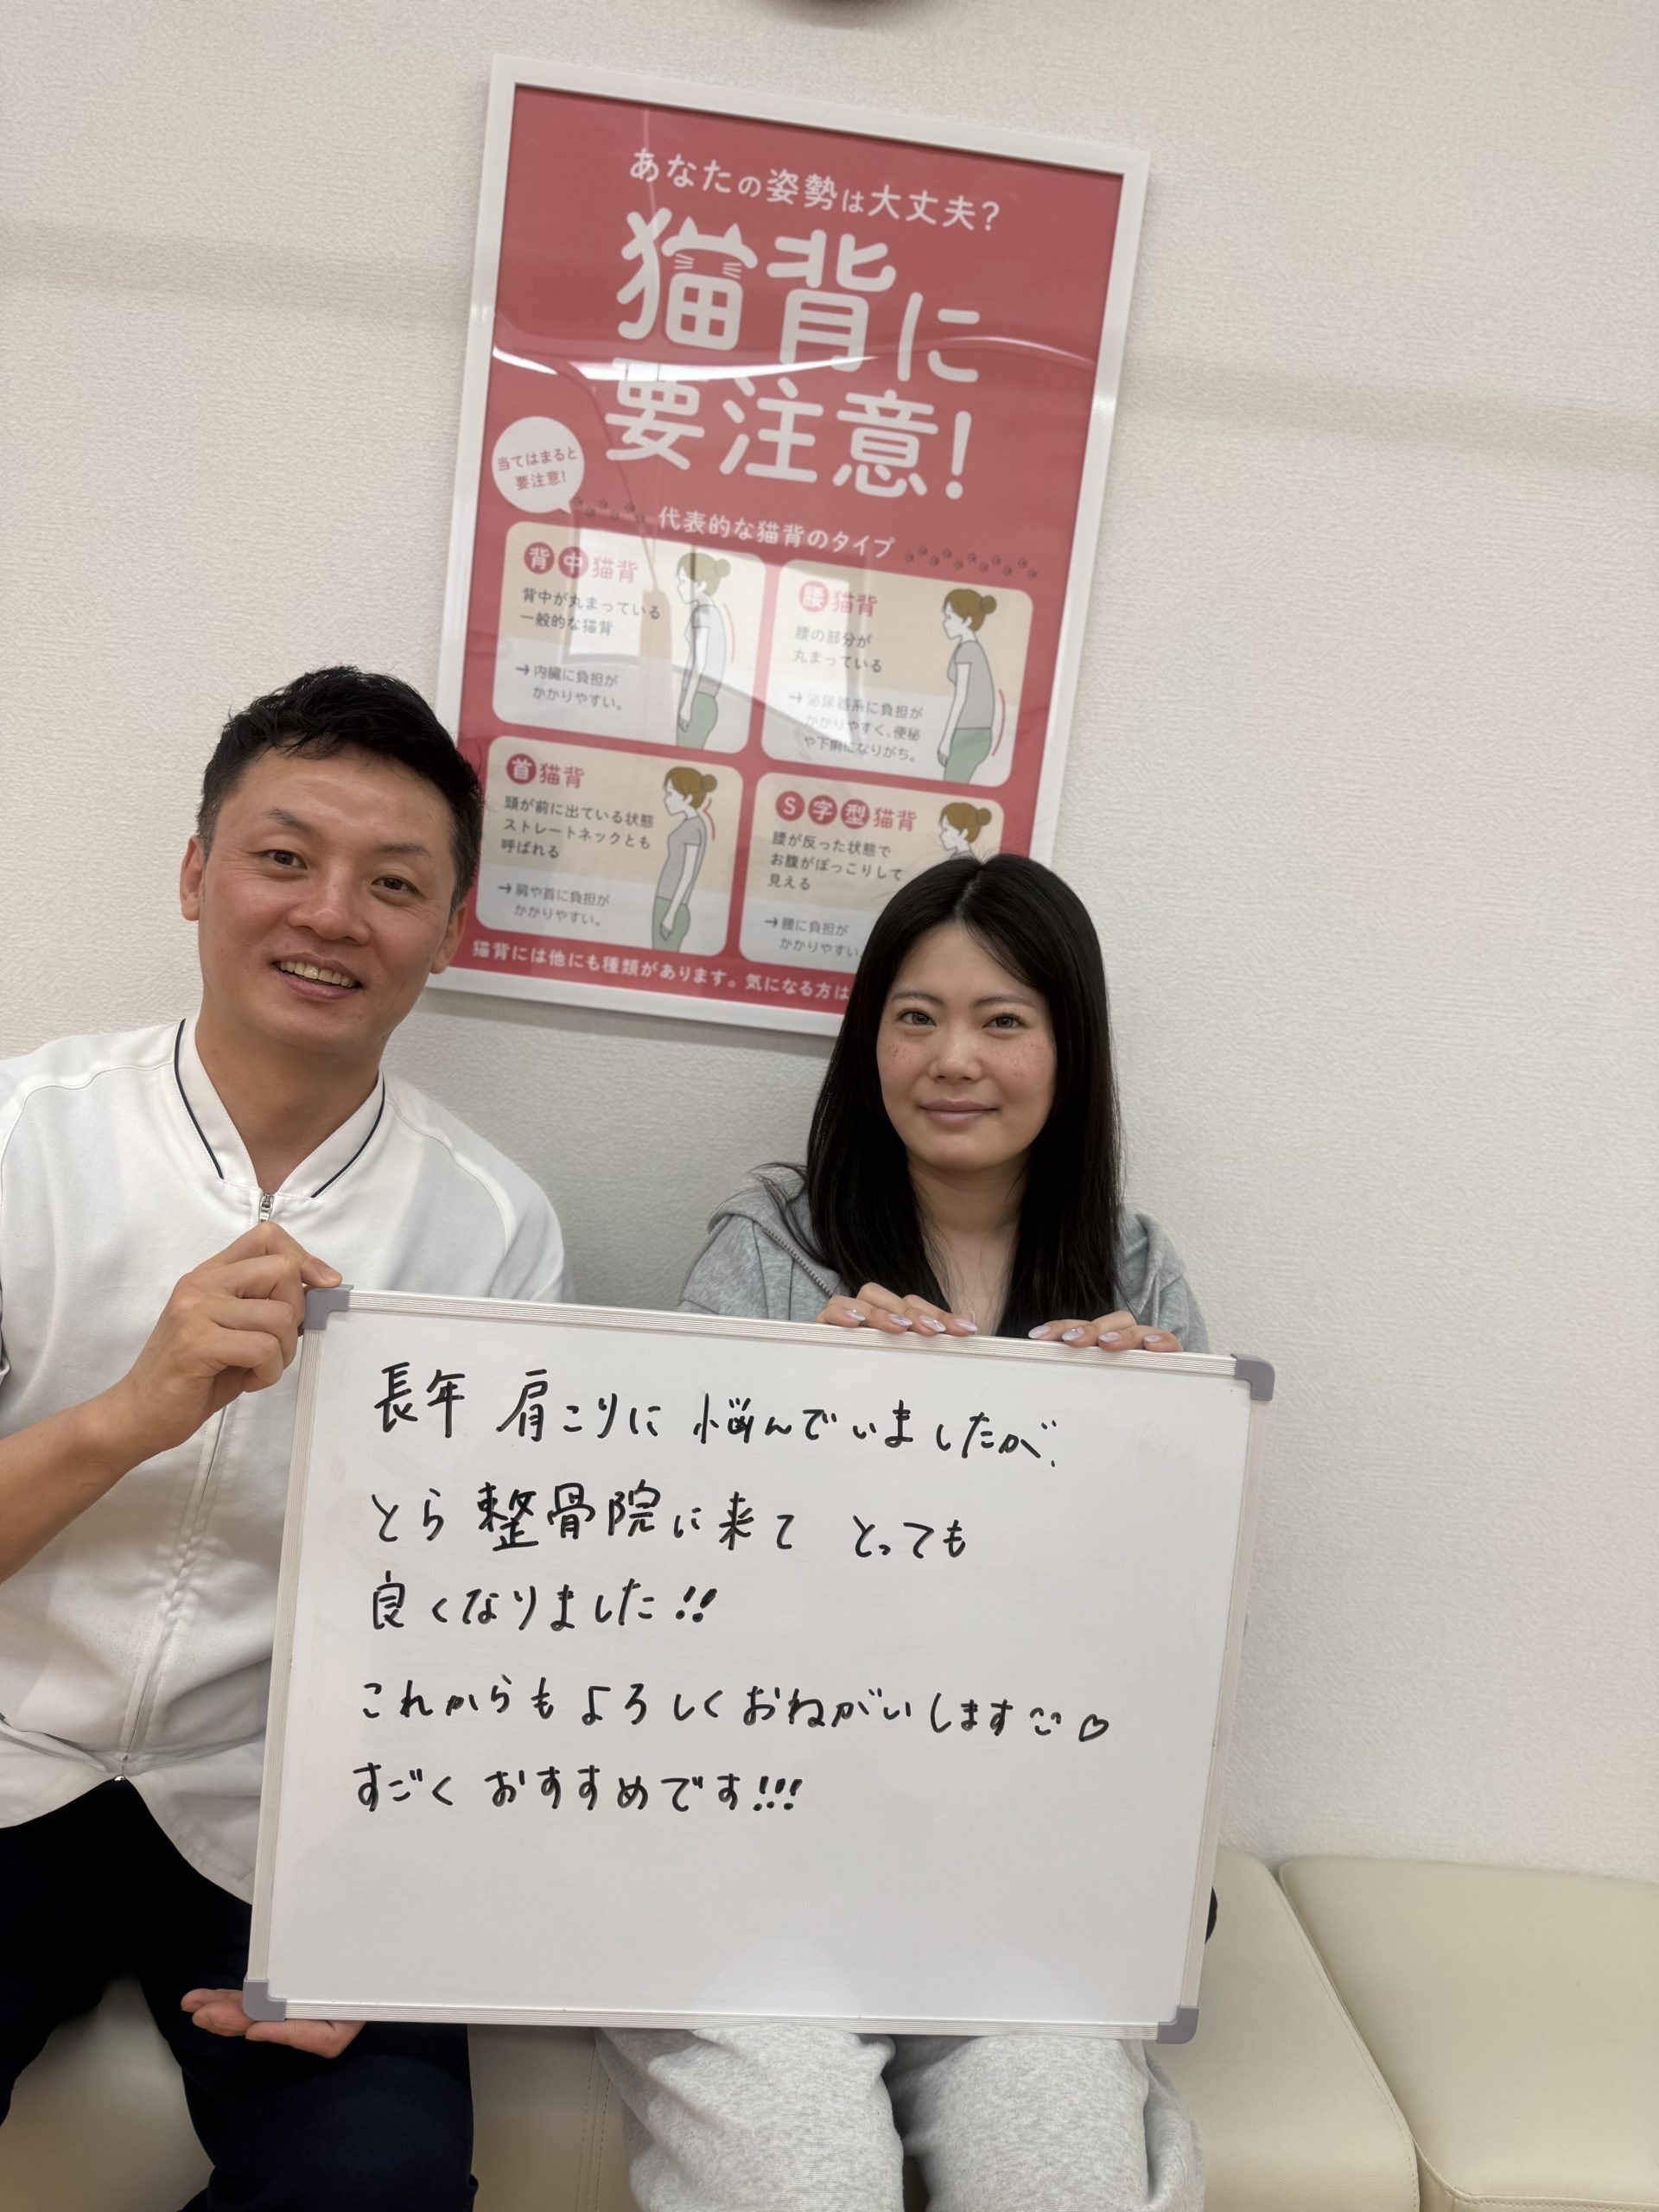 あなたの姿勢は大丈夫?
猫背に
要注意!
当てはまると
要注意!
代表的な猫背のタイプ
背中猫背
背中が丸まっている
一般的な猫背
→内臓に負担が
かかりやすい。
腰猫背
腰の部分が
丸まっている
→泌尿器系に負担が
かかりやすく、便秘
や下痢になりがち。
首猫背
頭が前に出ている状態
ストレートネックとも
呼ばれる
→肩や首に負担が
かかりやすい。
S字型猫背
腰が反った状態で
お腹がぽっこりして
見える
→腰に負担が
かかりやすい
猫背には他にも種類があります。気になる方は
長年 肩こりに 悩んでいましたが、
とら整骨院に来て とっても
良くなりました!!
これからもよろしくおねがいします♡
すごく おすすめです!!!